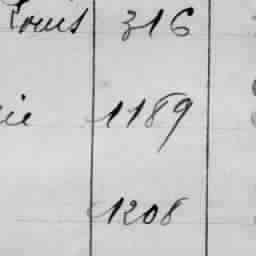 Louis 316
ie 1189
1208